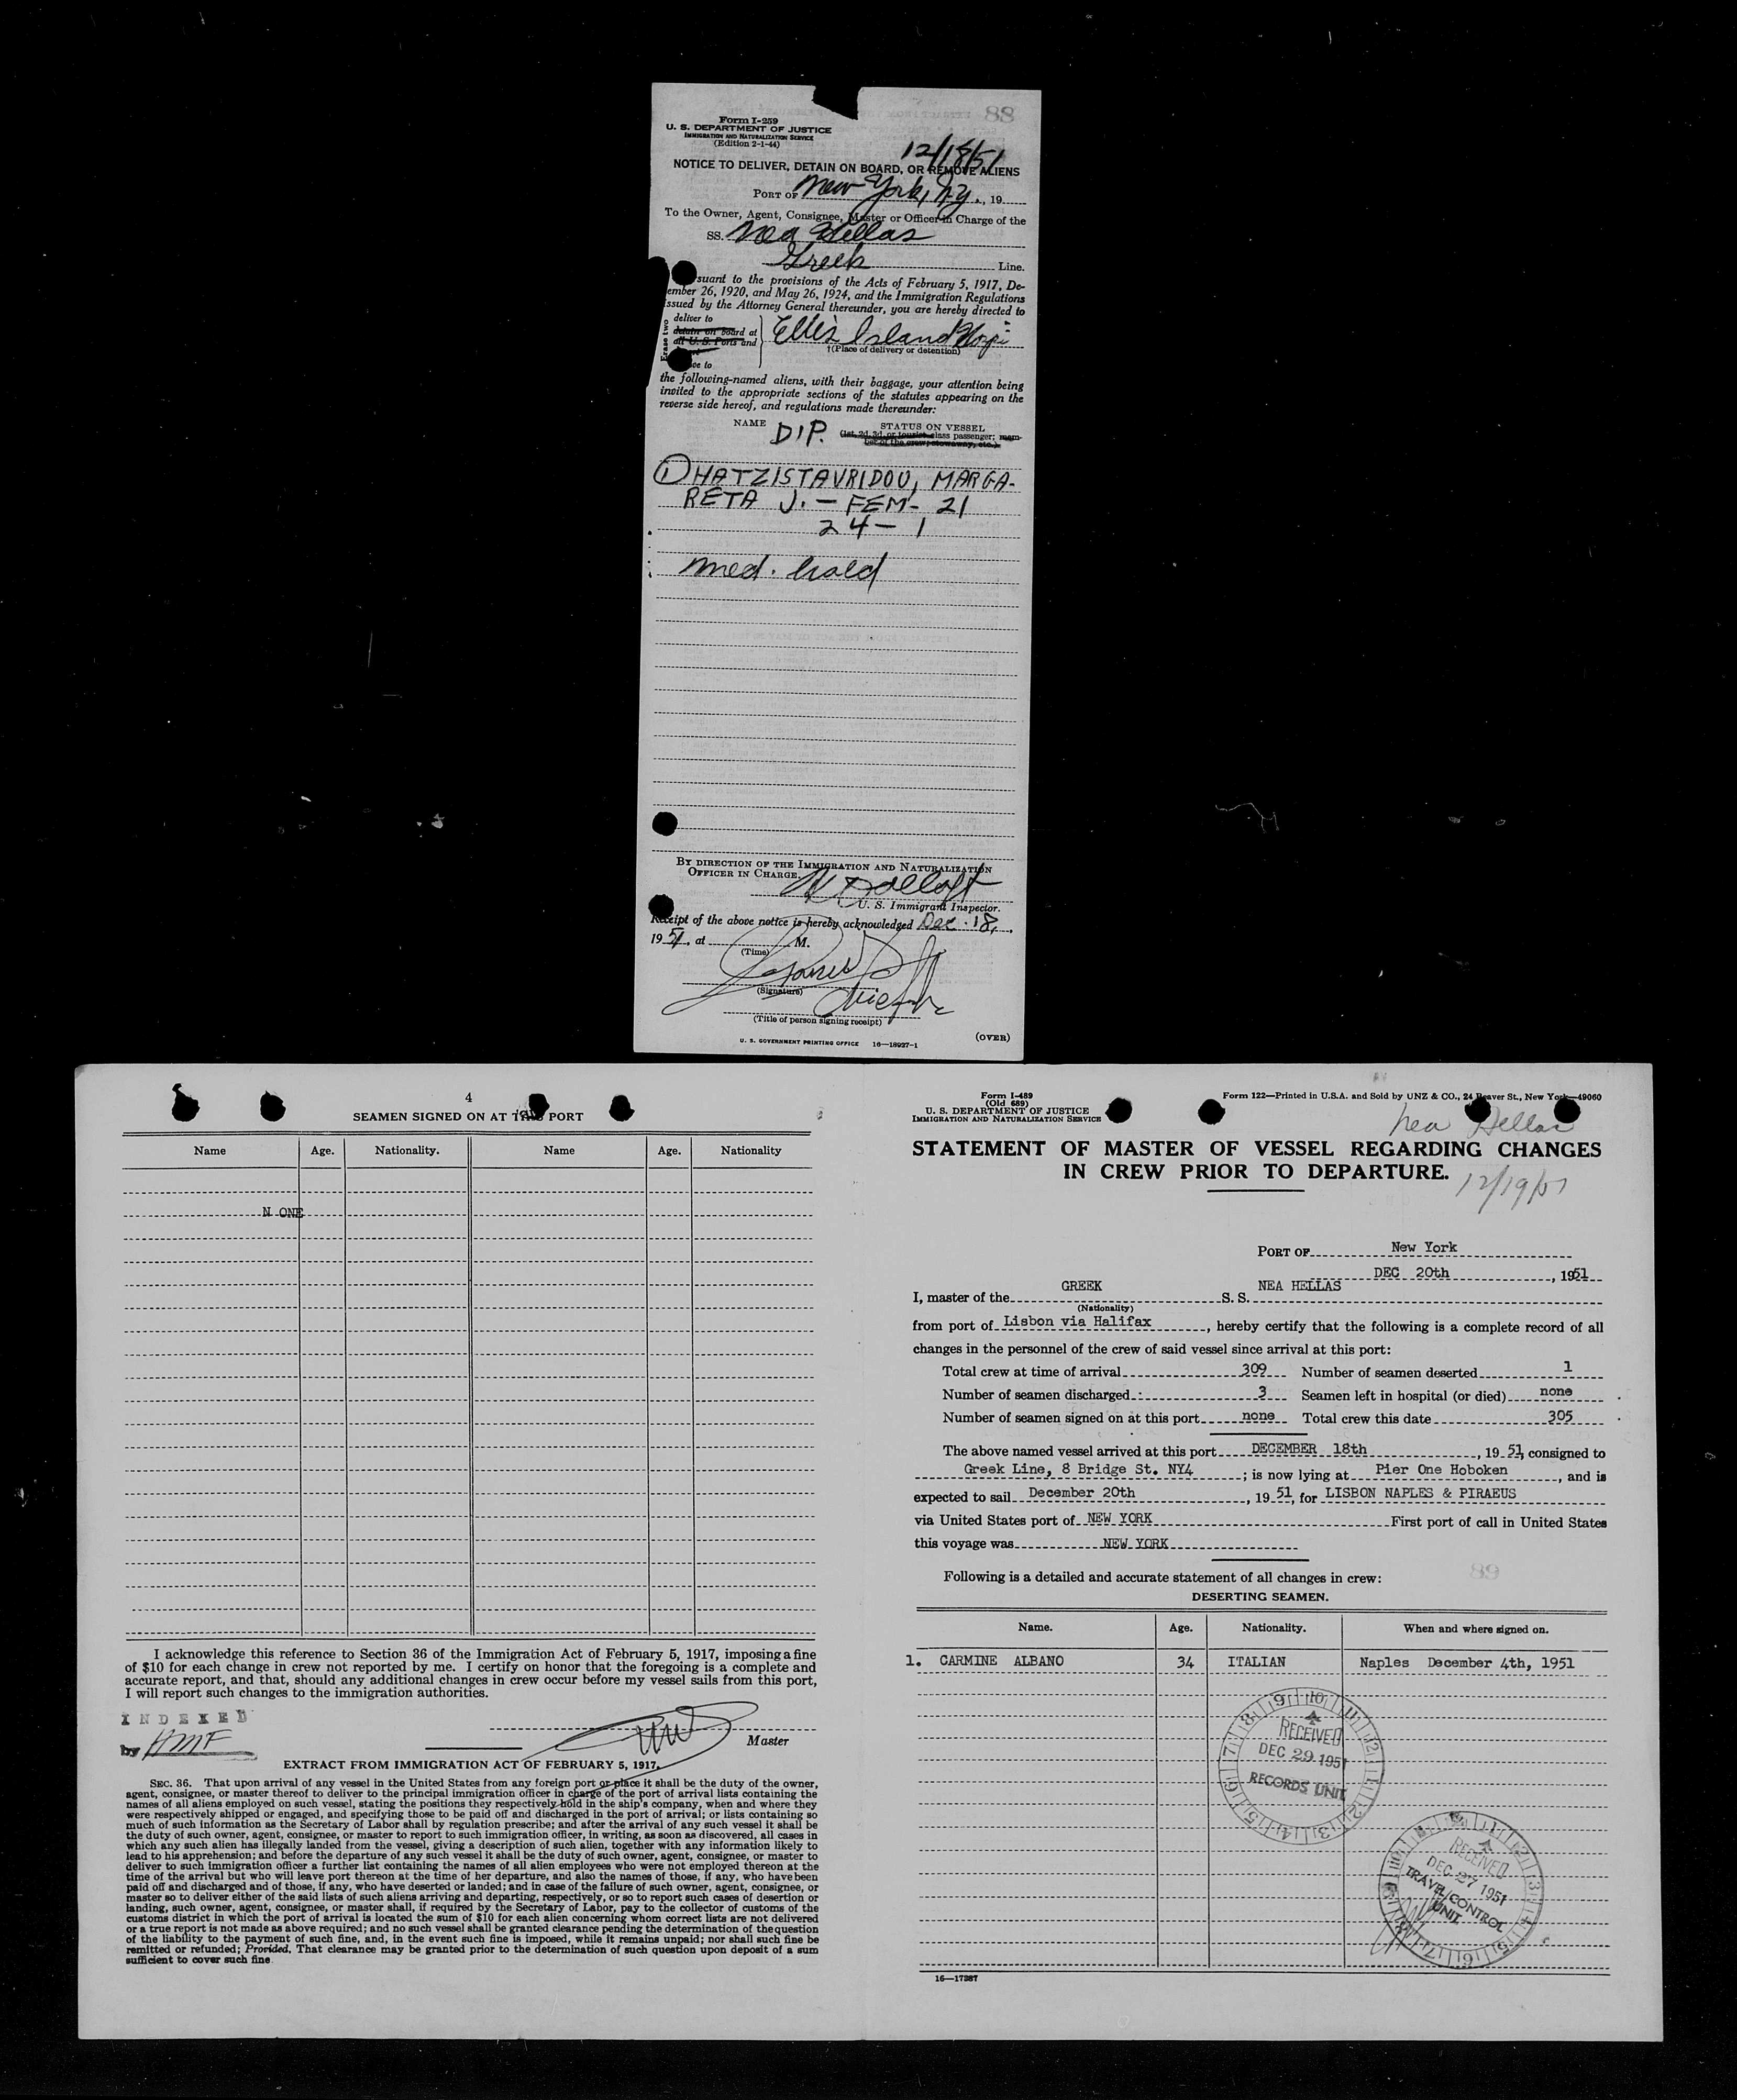 88
Form I-259
U. S. DEPARTMENT OF JUSTICE
IMMIGRATION AND NATURALIZATION SERVICE
(Edition 2-1-44)
12/18/51
NOTICE TO DELIVER, DETAIN ON BOARD, OR REMOVE ALIENS
PORT OF New York, N.Y., 19
To the Owner, Agent, Consignee, Master or Officer in Charge of the
SS. Nea Hellas
Greek Line.
suant to the provisions of the Acts of February 5, 1917, De-
ember 26, 1920, and May 26, 1924, and the Immigration Regulations
issued by the Attorney General thereunder, you are hereby directed to
deliver to
detain on board at
all U. S. Ports and
Erase two
Ellis Island Hosp.
†(Place of delivery or detention)
the following-named aliens, with their baggage, your attention being
invited to the appropriate sections of the statutes appearing on the
reverse side hereof, and regulations made thereunder:
NAME DIP. STATUS ON VESSEL
(1st, 2d, 3d, or tourist class passenger; mem-
ber of the crew; stowaway, etc.)
① HATZISTAVRIDOU, MARGA-
RETA J. - FEM - 21
24 - 1
Med. hold
BY DIRECTION OF THE IMMIGRATION AND NATURALIZATION
OFFICER IN CHARGE.
U. S. Immigrant Inspector.
Receipt of the above notice is hereby acknowledged Dec. 18,
1951, at M.
(Time)
(Signature)
(Title of person signing receipt)
U. S. GOVERNMENT PRINTING OFFICE 16—18927-1
(OVER)
4
SEAMEN SIGNED ON AT THIS PORT
Name Age. Nationality. Name Age. Nationality
N ONE
I acknowledge this reference to Section 36 of the Immigration Act of February 5, 1917, imposing a fine
of $10 for each change in crew not reported by me. I certify on honor that the foregoing is a complete and
accurate report, and that, should any additional changes in crew occur before my vessel sails from this port,
I will report such changes to the immigration authorities.
INDEXED
by HMF
Master
EXTRACT FROM IMMIGRATION ACT OF FEBRUARY 5, 1917.
SEC. 36. That upon arrival of any vessel in the United States from any foreign port or place it shall be the duty of the owner,
agent, consignee, or master thereof to deliver to the principal immigration officer in charge of the port of arrival lists containing the
names of all aliens employed on such vessel, stating the positions they respectively hold in the ship's company, when and where they
were respectively shipped or engaged, and specifying those to be paid off and discharged in the port of arrival; or lists containing so
much of such information as the Secretary of Labor shall by regulation prescribe; and after the arrival of any such vessel it shall be
the duty of such owner, agent, consignee, or master to report to such immigration officer, in writing, as soon as discovered, all cases in
which any such alien has illegally landed from the vessel, giving a description of such alien, together with any information likely to
lead to his apprehension; and before the departure of any such vessel it shall be the duty of such owner, agent, consignee, or master to
deliver to such immigration officer a further list containing the names of all alien employees who were not employed thereon at the
time of the arrival but who will leave port thereon at the time of her departure, and also the names of those, if any, who have been
paid off and discharged and of those, if any, who have deserted or landed; and in case of the failure of such owner, agent, consignee, or
master so to deliver either of the said lists of such aliens arriving and departing, respectively, or so to report such cases of desertion or
landing, such owner, agent, consignee, or master shall, if required by the Secretary of Labor, pay to the collector of customs of the
customs district in which the port of arrival is located the sum of $10 for each alien concerning whom correct lists are not delivered
or a true report is not made as above required; and no such vessel shall be granted clearance pending the determination of the question
of the liability to the payment of such fine, and, in the event such fine is imposed, while it remains unpaid; nor shall such fine be
remitted or refunded; Provided, That clearance may be granted prior to the determination of such question upon deposit of a sum
sufficient to cover such fine.
Form I-489
(Old 689)
U. S. DEPARTMENT OF JUSTICE
IMMIGRATION AND NATURALIZATION SERVICE
Form 122—Printed in U.S.A. and Sold by UNZ & CO., 24 Beaver St., New York—49060
Nea Hellas
STATEMENT OF MASTER OF VESSEL REGARDING CHANGES
IN CREW PRIOR TO DEPARTURE.
12/19/51
PORT OF New York
DEC 20th, 1951
I, master of the GREEK S. S. NEA HELLAS
(Nationality)
from port of Lisbon via Halifax, hereby certify that the following is a complete record of all
changes in the personnel of the crew of said vessel since arrival at this port:
Total crew at time of arrival 309 Number of seamen deserted 1
Number of seamen discharged 3 Seamen left in hospital (or died) none
Number of seamen signed on at this port none Total crew this date 305
The above named vessel arrived at this port DECEMBER 18th, 1951, consigned to
Greek Line, 8 Bridge St. NY4; is now lying at Pier One Hoboken, and is
expected to sail December 20th, 1951, for LISBON NAPLES & PIRAEUS
via United States port of NEW YORK First port of call in United States
this voyage was NEW YORK
89
Following is a detailed and accurate statement of all changes in crew:
DESERTING SEAMEN.
Name. Age. Nationality. When and where signed on.
1. CARMINE ALBANO 34 ITALIAN Naples December 4th, 1951
RECEIVED
DEC 29 1951
RECORDS UNIT
RECEIVED
DEC 27 1951
TRAVEL CONTROL
UNIT
16—17287